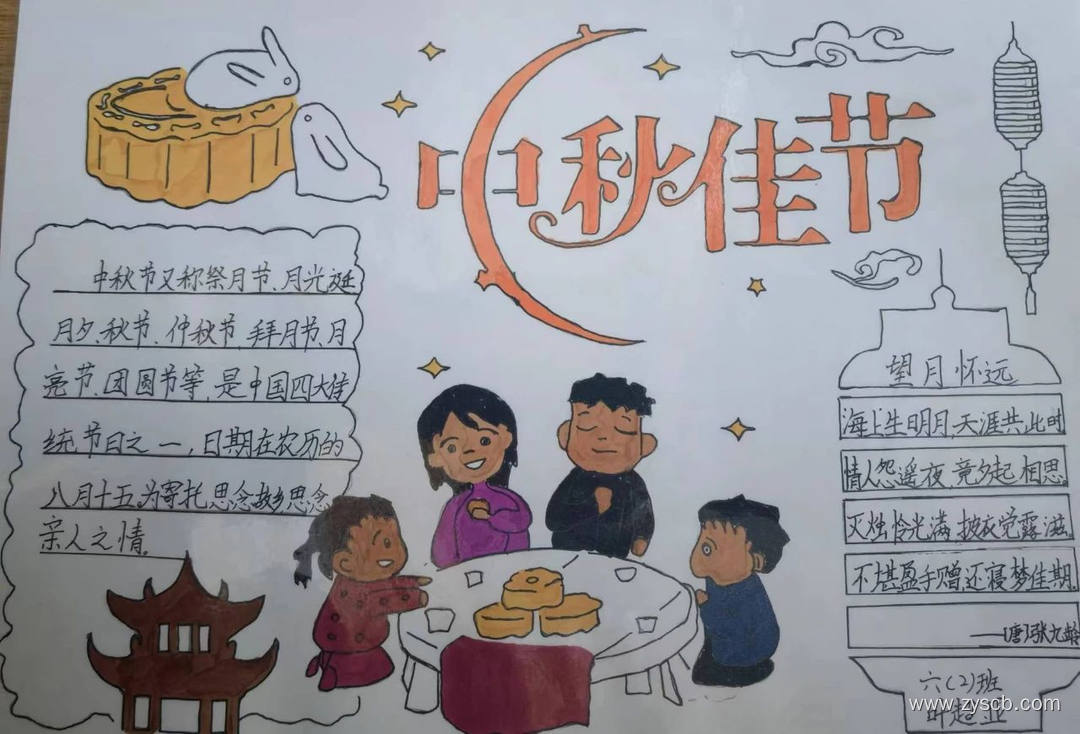 中秋佳节
中秋节又称祭月节、月光诞
月夕、秋节、仲秋节、拜月节、月
亮节、团圆节等,是中国四大传
统节日之一,日期在农历的
八月十五,为寄托思念故乡思念
亲人之情。
望月怀远
海上生明月,天涯共此时
情人怨遥夜,竟夕起相思
灭烛怜光满,披衣觉露滋
不堪盈手赠,还寝梦佳期
——[唐]张九龄
六(2)班
叶超业
www.zyscb.com